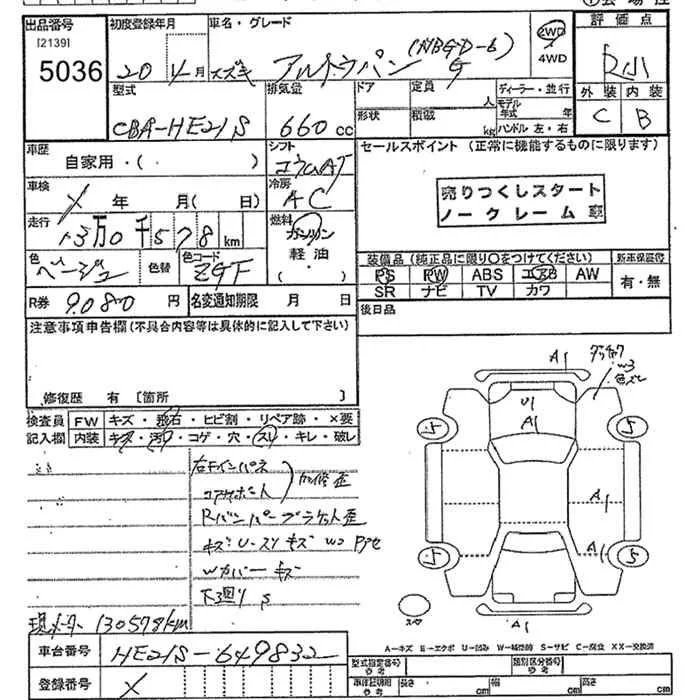 出品番号
[2139]
5036
初度登録年月
20年4月
車名・グレード
スズキ アルトラパン G
2WD
4WD
評価点
外装 内装
C B
型式
CBA-HE21S
排気量
660cc
ドア
形状
定員 人
積載 kg
ディーラー・並行
モデル年式 年
ハンドル 左・右
車歴
自家用・( )
シフト
コラムAT
セールスポイント (正常に機能するものに限ります)
売りつくしスタート
ノークレーム
車検
年 月( 日)
冷房
AC
走行
13万0千578km
燃料
ガソリン
軽油
色
ベージュ
色替
色コード
ZGF
装備品 (純正品に限り○をつけてください)
PS PW ABS エアB AW
SR ナビ TV カワ
新車保証書
有・無
R券 9080円
名変通知期限 月 日
後日品
注意事項申告欄(不具合内容等は具体的に記入して下さい)
修復歴 有 [箇所 ]
検査員
記入欄
FW キズ・飛石・ヒビ割・リペア跡・×要
内装 キズ・汚レ・コゲ・穴・スレ・キレ・破レ
右Fインパネ
コアサポート
Rバンパーブラケット歪
Wカバーキズ
下廻りS
現メーター 130578km
A1
U1
A1
W3
色ズレ
.5
5
A1
A1
.5
5
A1
スペア
A=キズ E=エクボ U=凹み W=補修跡 S=サビ C=腐食 XX=交換済
車台番号
HE21S-649832
登録番号
X
型式指定番号
参考
類別区分番号
参考
車体証明用
参考
長さ cm
幅 cm
高さ cm